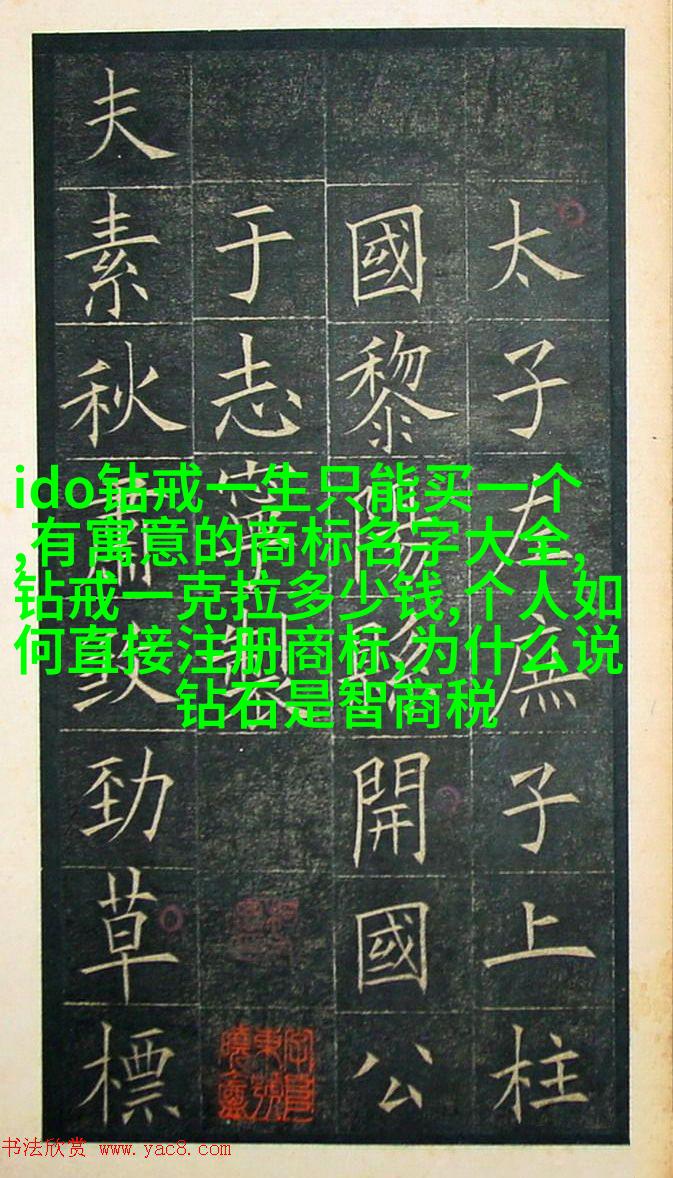 太子左庶子上柱
國黎陽縣開國公
于志寧製
夫素秋肅煞勁草標
ido钻戒一生只能买一个
,有寓意的商标名字大全,
钻戒一克拉多少钱,个人如
何直接注册商标,为什么说
钻石是智商税
书法欣赏 www.yac8.com